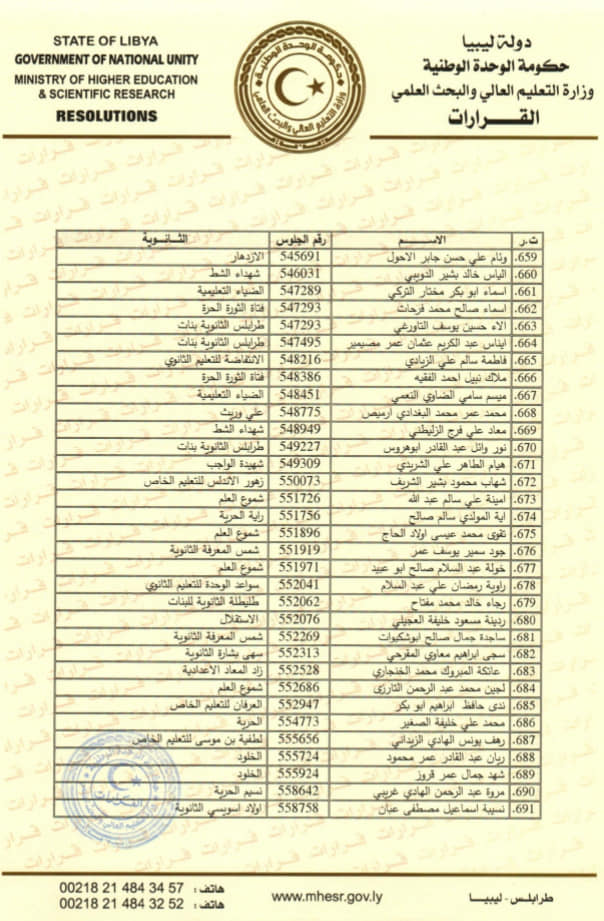 STATE OF LIBYA
GOVERNMENT OF NATIONAL UNITY
MINISTRY OF HIGHER EDUCATION
& SCIENTIFIC RESEARCH
RESOLUTIONS
دولة ليبيا
حكومة الوحدة الوطنية
وزارة التعليم العالي والبحث العلمي
القـــرارات
ت.ر الاســـم رقم الجلوس الثـانـوية
659. وئام علي حسن جابر الاحول 545691 الازدهار
660. الياس خالد بشير الدويبي 546031 شهداء الشط
661. اسماء ابو بكر مختار التركي 547289 الضياء التعليمية
662. اسماء صالح محمد فرحات 547293 فتاة الثورة الحرة
663. الاء حسين يوسف التاورغي 547293 طرابلس الثانوية بنات
664. ايناس عبد الكريم عثمان عمر مصيمير 547495 طرابلس الثانوية بنات
665. فاطمة سالم علي الزيادي 548216 الانتفاضة للتعليم الثانوي
666. ملاك نبيل احمد الفقيه 548386 فتاة الثورة الحرة
667. ميسم سامي الضاوي النعمي 548451 الضياء التعليمية
668. محمد عمر محمد البغدادي ارميص 548775 علي وريث
669. معاد علي فرج الزليطني 548949 شهداء الشط
670. نور وائل عبد القادر ابوهروس 549227 طرابلس الثانوية بنات
671. هيام الطاهر علي الشريدي 549309 شهيدة الواجب
672. شهاب محمود بشير الشريف 550073 زهور الاندلس للتعليم الخاص
673. امينة علي سالم عبد الله 551726 شموع العلم
674. اية المولدي سالم صالح 551756 راية الحرية
675. تقوى محمد عيسى اولاد الحاج 551896 شموع العلم
676. جود سمير يوسف عمر 551919 شمس المعرفة الثانوية
677. خولة عبد السلام صالح ابو عبيد 551971 شموع العلم
678. راوية رمضان علي عبد السلام 552041 سواعد الوحدة للتعليم الثانوي
679. رجاء خالد محمد مفتاح 552062 طليطلة الثانوية للبنات
680. ردينة مسعود خليفة العجيلي 552076 الاستقلال
681. ساجدة جمال صالح ابوشكيوات 552269 شمس المعرفة الثانوية
682. سجى ابراهيم معاوي المقرحي 552313 سهى بشارة الثانوية
683. عاتكة المبروك محمد الخنجاري 552528 زاد المعاد الاعدادية
684. لجين محمد عبد الرحمن التارزى 552686 شموع العلم
685. ندى حافظ ابراهيم ابو بكر 552947 العرفان للتعليم الخاص
686. محمد علي خليفة الصغير 554773 الحرية
687. رهف يونس الهادي الزيداني 555656 لطفية بن موسى للتعليم الخاص
688. ريان عبد القادر عمر محمود 555724 الخلود
689. شهد جمال عمر قروز 555924 الخلود
690. مروة عبد الرحمن الهادي غريبي 558642 نسيم الحرية
691. نسيبة اسماعيل مصطفى عبان 558758 اولاد اسويسي الثانوية
00218 21 484 34 57 هاتف:
00218 21 484 32 52 هاتف:
www.mhesr.gov.ly
طرابلس - ليبيا